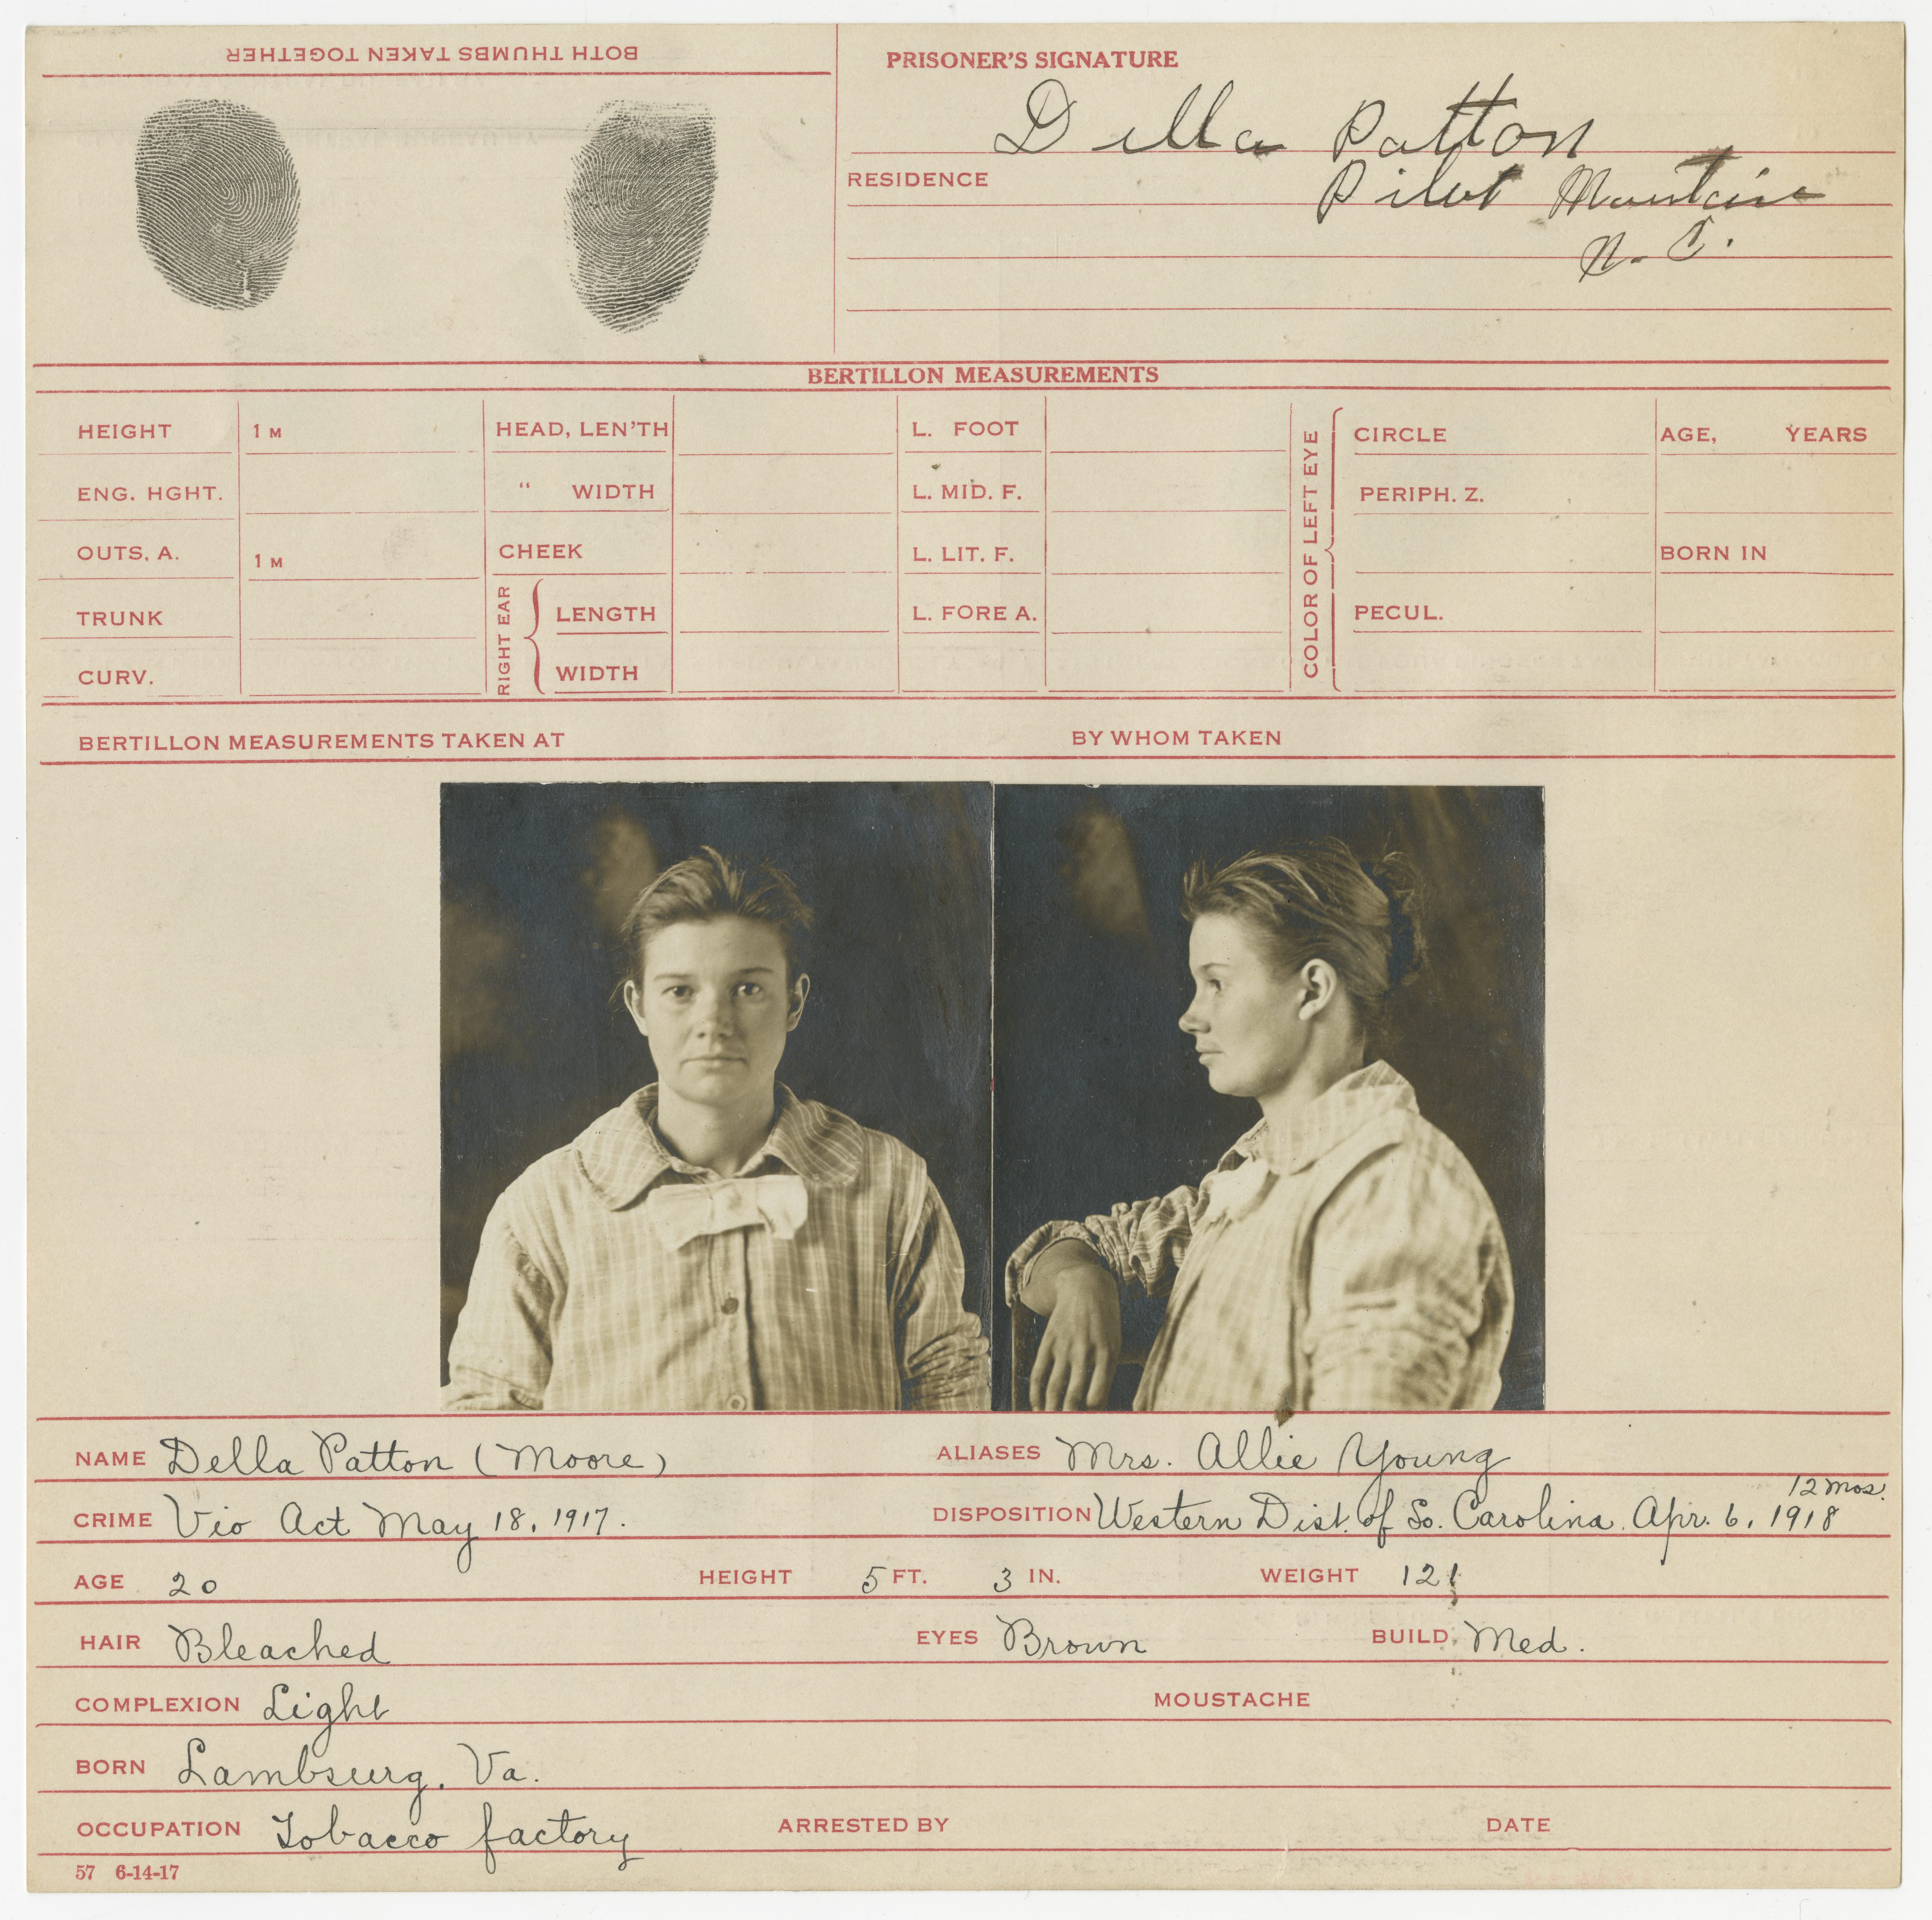 BOTH THUMBS TAKEN TOGETHER
PRISONER'S SIGNATURE
Della Patton
RESIDENCE Pilot Mountain
N. C.
BERTILLON MEASUREMENTS
HEIGHT 1 M HEAD, LEN'TH L. FOOT CIRCLE AGE, YEARS
ENG. HGHT. " WIDTH L. MID. F. PERIPH. Z.
OUTS. A. 1 M CHEEK L. LIT. F. BORN IN
TRUNK LENGTH L. FORE A. PECUL.
CURV. WIDTH
RIGHT EAR
COLOR OF LEFT EYE
BERTILLON MEASUREMENTS TAKEN AT BY WHOM TAKEN
NAME Della Patton (Moore) ALIASES Mrs. Allie Young
12 mos.
CRIME Vio Act May 18, 1917. DISPOSITION Western Dist. of So. Carolina Apr. 6, 1918
AGE 20 HEIGHT 5 FT. 3 IN. WEIGHT 121
HAIR Bleached EYES Brown BUILD Med.
COMPLEXION Light MOUSTACHE
BORN Lambsurg, Va.
OCCUPATION Tobacco factory ARRESTED BY DATE
57 6-14-17